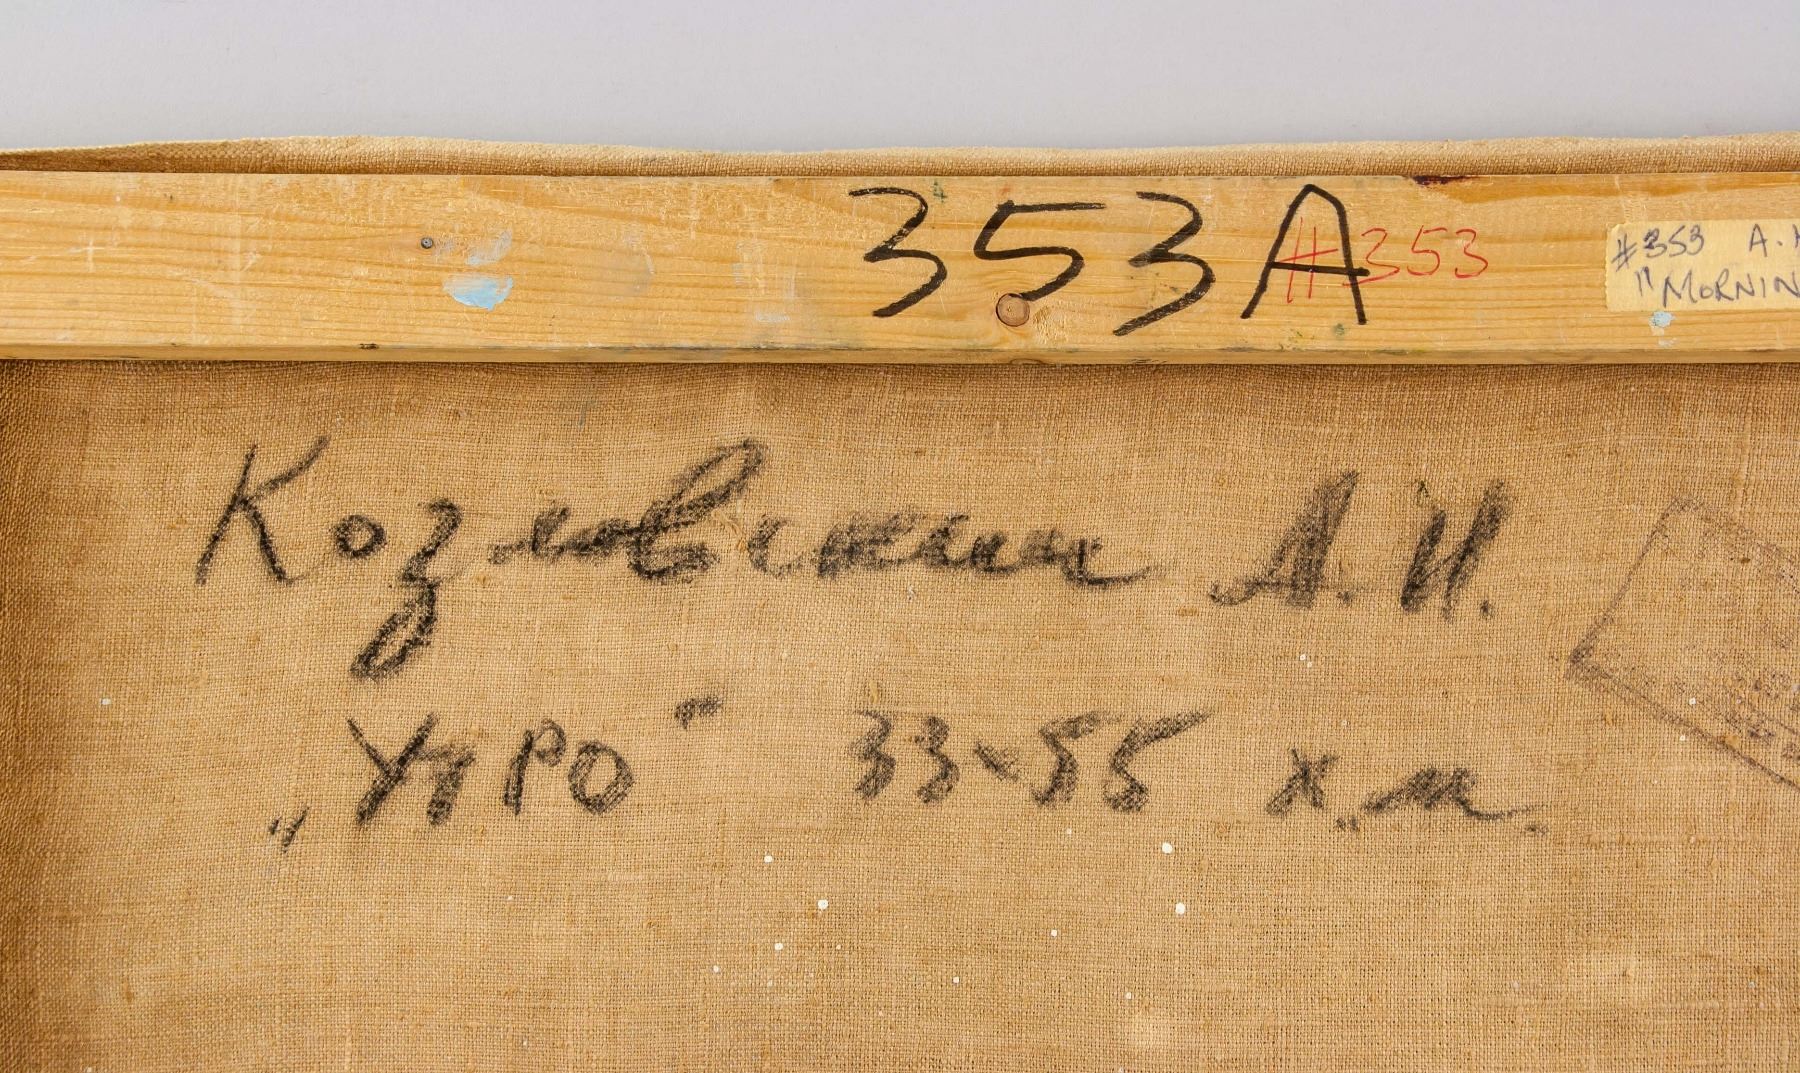 353A
#353
#353 A.
"MORNIN
Козловский А.И.
„Утро" 33×55 х.м.